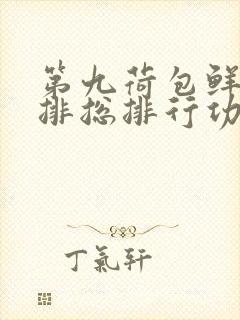 第九荷包鲜
排总排行功
丁氣轩